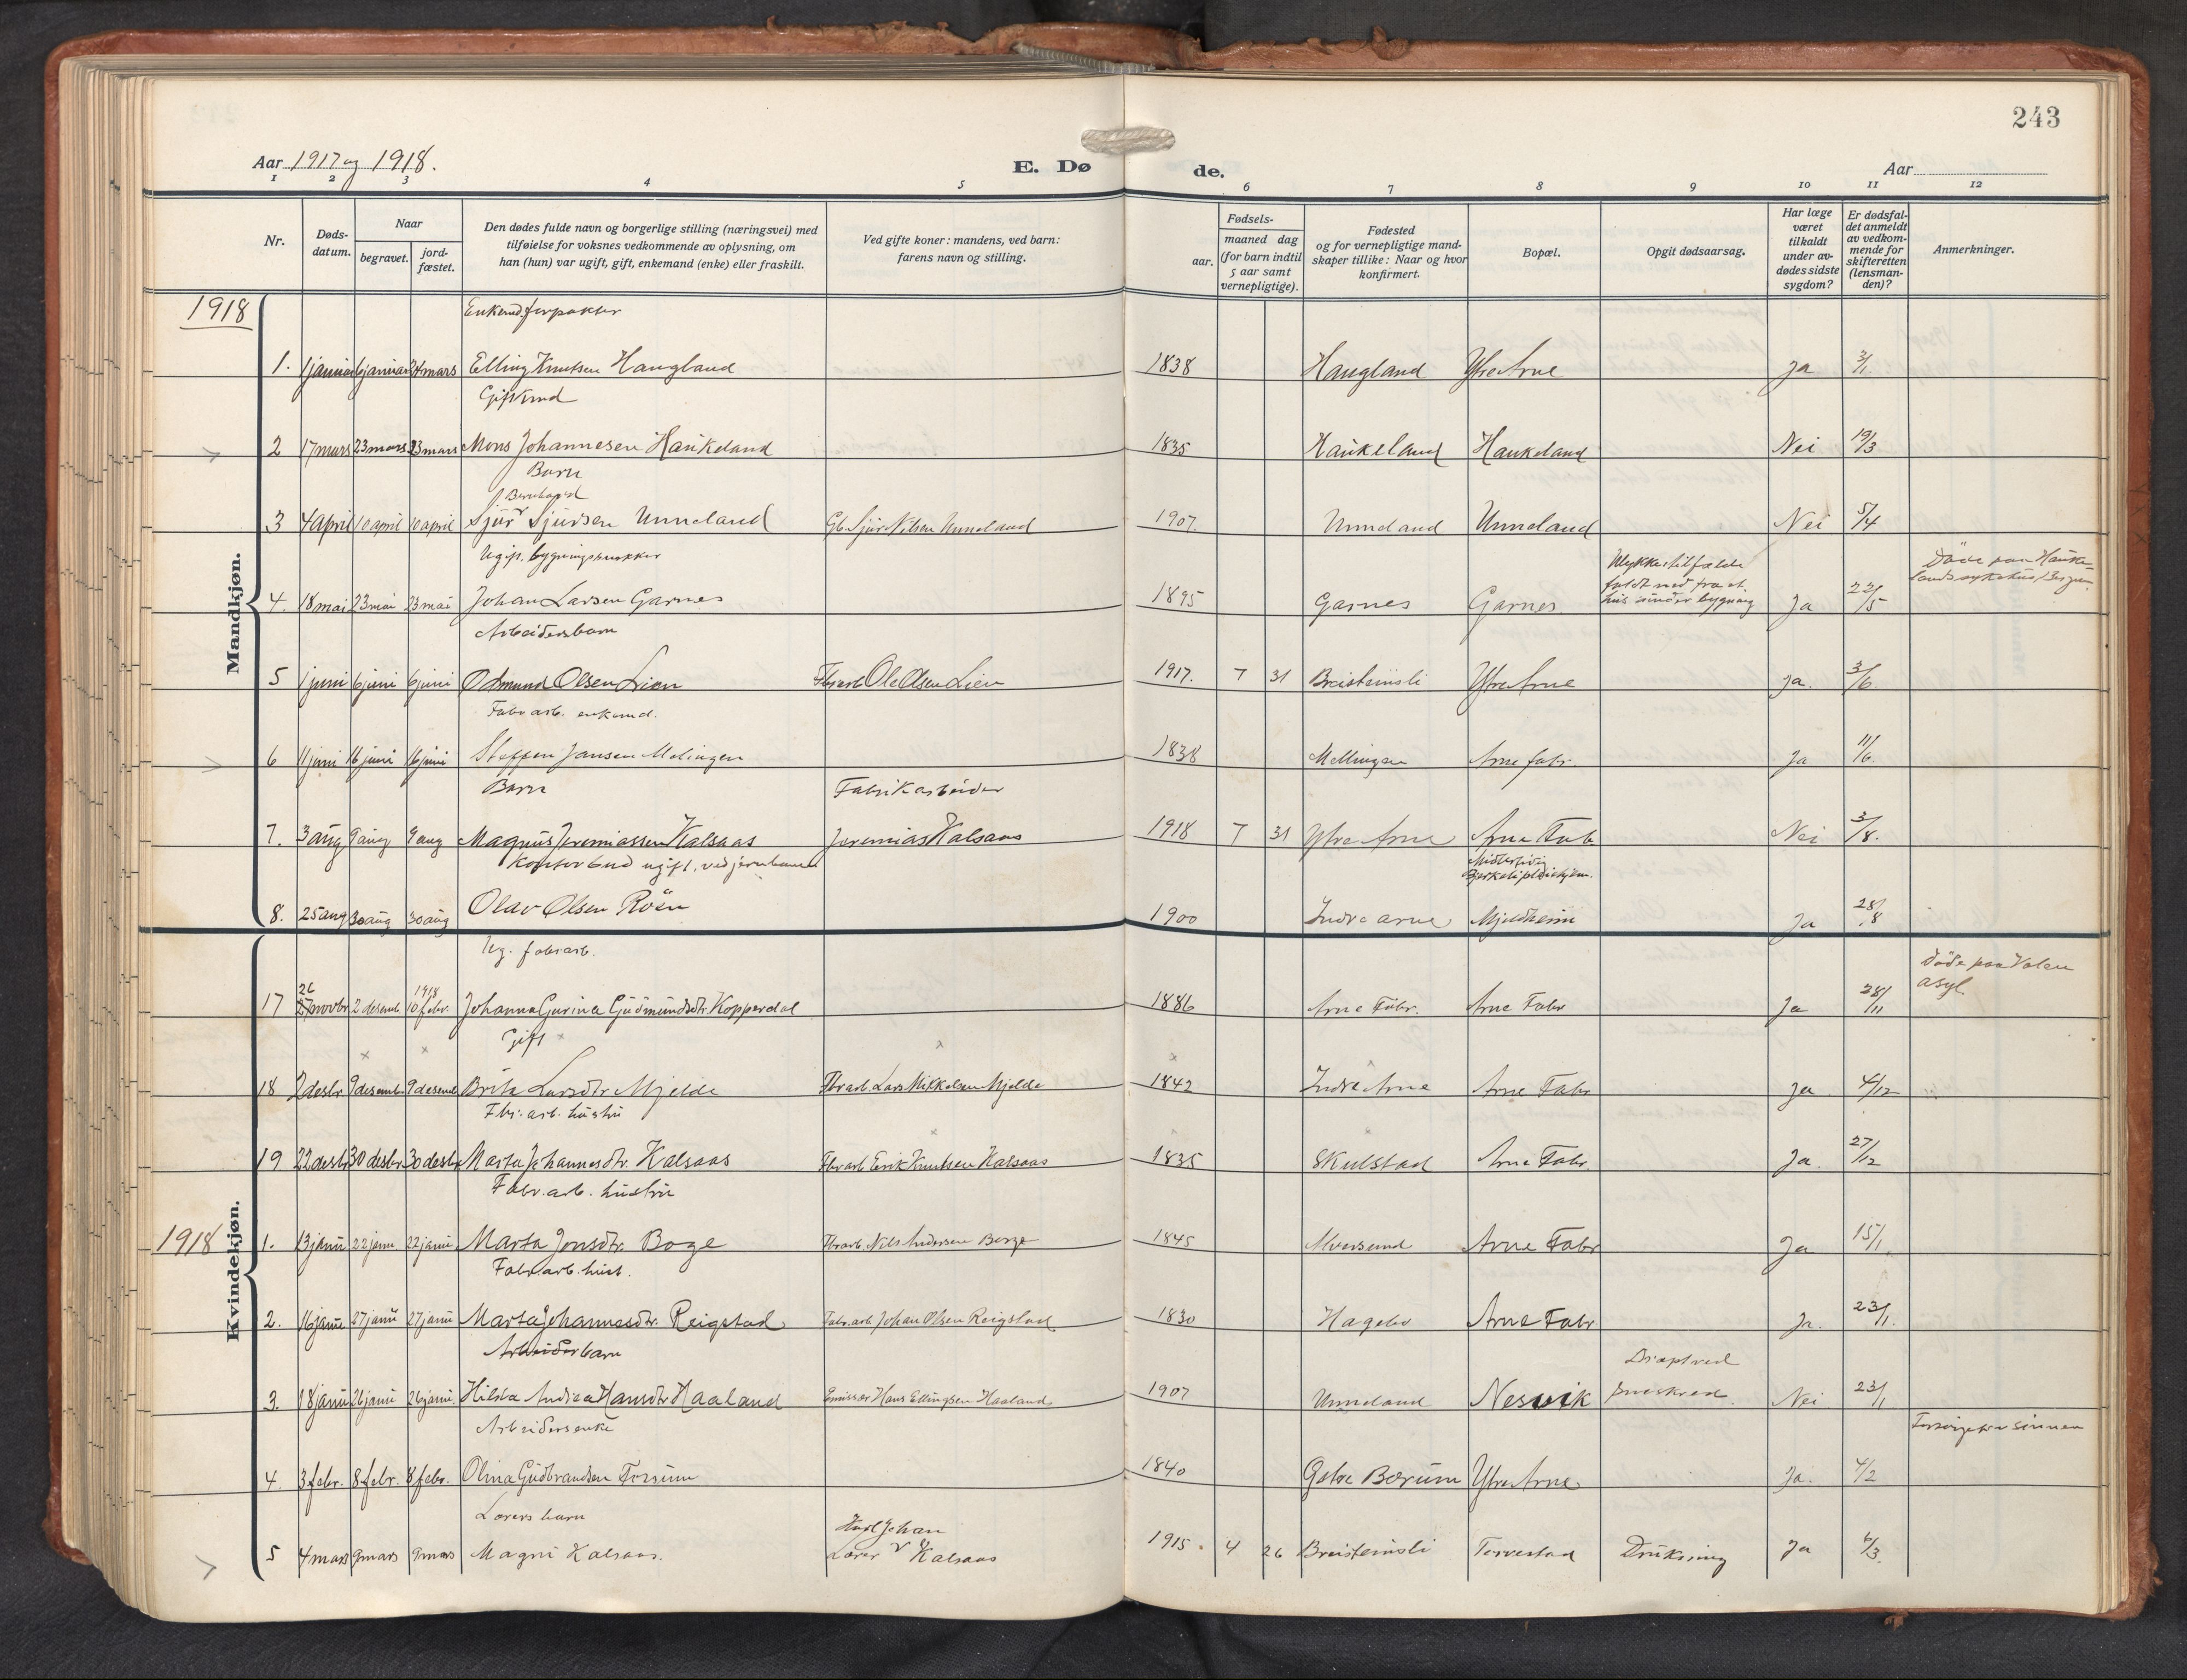 243
Aar 1917 og 1918.
E. Dø
de.
Aar
1 2 3 4 5 6 7 8 9 10 11 12
Nr.
Døds-
datum.
Naar
begravet.
jord-
fæstet.
Den dødes fulde navn og borgerlige stilling (næringsvei) med
tilføielse for voksnes vedkommende av oplysning, om
han (hun) var ugift, gift, enkemand (enke) eller fraskilt.
Ved gifte koner: mandens, ved barn:
farens navn og stilling.
Fødsels-
aar.
maaned dag
(for barn indtil
5 aar samt
vernepligtige).
Fødested
og for vernepligtige mand-
skaper tillike: Naar og hvor
konfirmert.
Bopæl.
Opgit dødsaarsag.
Har læge
været
tilkaldt
under av-
dødes sidste
sygdom?
Er dødsfal-
det anmeldt
av vedkom-
mende for
skifteretten
(lensman-
den)?
Anmerkninger.
1918
Mandkjøn.
Enkemd. forpakter
1. 1 januar 6 januar 24 mars Elling Knutsen Haugland 1838 Haugland Ytre Arne Ja 3/1
Gift kmd
2 17 mars 23 mars 23 mars Mons Johannesen Haukeland 1835 Haukeland Haukeland Nei 19/3
Barn
3 4 april 10 april 10 april Sjur Sjursen Unneland Gb. Sjur Nilsen Unneland 1907 Unneland Unneland Nei 5/4
Ugift. bygningssnekker
4. 18 mai 23 mai 23 mai Johan Larsen Garnes 1895 Garnes Garnes Ulykkestilfælde
faldt ned fra et
hus under bygning Ja 22/5 Døde paa Hauke-
lands sykehus, Bergen.
Arbeidersbarn
5 1 juni 6 juni 6 juni Odmund Olsen Lien Fbrarb. Ole Olsen Lien 1917. 7 31 Breisteinsli Ytre Arne Ja. 3/6
Fabr arb. enkemd.
6 11 juni 16 juni 16 juni Steffen Jansen Melingen 1838 Mellingen Arne fabr. Ja 11/6
Barn Fabrikarbeider
7. 3 aug 9 aug 9 aug Magnus Jeremiassen Kalsaas Jeremias Kalsaas 1918 7 31 Ytre Arne Arne Fab Nei 3/8.
Kontorbud ugift, ved jernbanen Midlertidig
8. 25 aug 30 aug 30 aug Olav Olsen Röen 1900 Indre Arne Mjeldheim Ja 28/8
Kvindekjøn.
Ug. fabrarb.
17 26 novbr 2 desemb. 1918 10 febr. Johanna Gurina Gudmundsdtr. Kopperdal 1886 Arne Fabr. Arne Fabr Ja 28/11 Döde paa Valen
asyl
Gift
18 2 desbr. 9 desemb. 9 desemb Brita Larsdtr Mjelde Fbrarb. Lars Mikkelsen Mjelde 1842 Indre Arne Arne Fabr Ja 4/12
Fbr. arb. hustru
19 22 desbr 30 desbr. 30 desbr Marta Johannesdtr. Kalsaas Fbrarb. Erik Knutsen Kalsaas 1835 Skulstad Arne Fabr Ja. 27/12
Fabr. arb. hustru
1918 1. 13 janu 22 janu 22 janu Marta Jonsdtr. Boge Fbrarb. Nils Andersen Borge 1845 Alversund Arne Fabr Ja 15/1
Fabr. arb. hust.
2. 16 janu 27 janu 27 janu Marta Johannesdtr. Reigstad Fabr. arb. Johan Olsen Reigstad 1830 Hagebø Arne Fabr Ja. 23/1.
Arbeiderbarn
3. 18 janu 26 janu 26 janu. Hilda Andrea Hansdtr Haaland Emissær Hans Ellingsen Haaland 1907 Unneland Nesvik Dræpt ved
sneskred. Nei 23/1
Arbeidersenke Forsörget av sönnen
4. 3 febr. 8 febr. 8 febr. Olina Gudbrandsen Forsum 1840 Østre Bærum Ytre Arne 1/2 Ja. 4/2
Lærers barn
5 4 mars 9 mars 9 mars Magni Kalsaas. Karl Johan
Lærer Kalsaas 1915. 4 26 Breisteinsli Torvestad Drukning Ja 6/3.